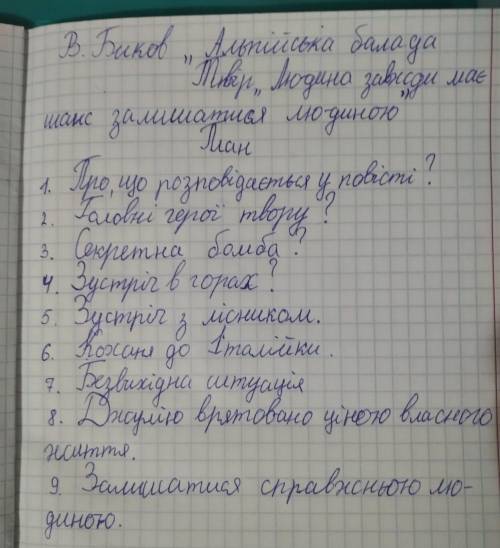 В. Биков „ Альпійська балада
Твір „ Людина завжди має
шанс залишатися людиною"
План
1. Про, що розповідається у повісті?
2. Головні герої твору?
3. Секретна бомба?
4. Зустріч в горах?
5. Зустріч з лісником.
6. Кохання до Італійки.
7. Безвихідна ситуація
8. Джулію врятовано ціною власного
життя.
9. Залишатися справжньою лю-
диною.